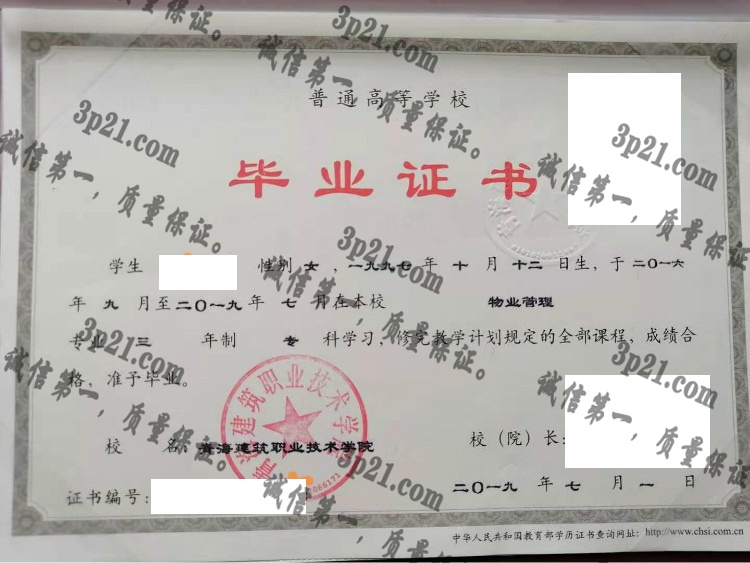 普通高等学校
毕业证书
学生 性别 女 ，一九九七年 十 月 十二 日生，于二〇一六
年 九 月至二〇一九年 七 月在本校 物业管理
专业 三 年制 专 科学习，修完教学计划规定的全部课程，成绩合
格，准予毕业。
校 名：青海建筑职业技术学院
校（院）长：
证书编号：
二〇一九 年 七 月 一 日
中华人民共和国教育部学历证书查询网址：http://www.chsi.com.cn
青海建筑职业技术学院
3p21.com
诚信第一，质量保证。
3p21.com
诚信第一，质量保证。
3p21.com
诚信第一，质量保证。
3p21.com
诚信第一，质量保证。
3p21.com
诚信第一，质量保证。
3p21.com
诚信第一，质量保证。
3p21.com
诚信第一，质量保证。
3p21.com
诚信第一，质量保证。